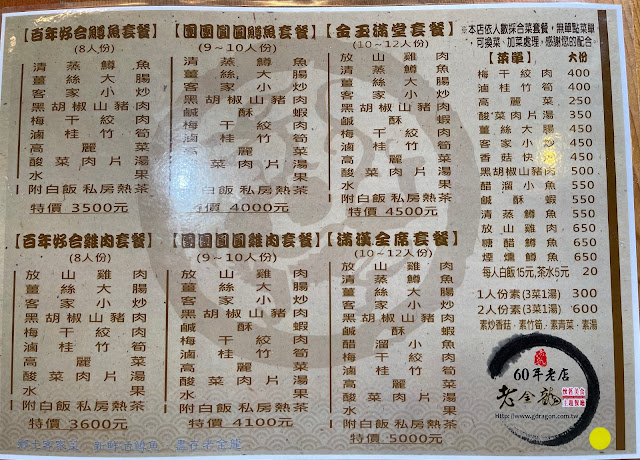 【百年好合鱒魚套餐】
(8人份)
清蒸鱒魚
薑絲大腸
客家小炒
黑胡椒山豬肉
梅干絞肉
滷桂竹筍
高麗菜
酸菜肉片湯
水果
附白飯 私房熱茶
特價 3500元
【團團圓圓鱒魚套餐】
(9～10人份)
清蒸鱒魚
薑絲大腸
客家小炒
黑胡椒山豬肉
鹹酥蝦
梅干絞肉
滷桂竹筍
高麗菜
酸菜肉片湯
水果
附白飯 私房熱茶
特價 4000元
【金玉滿堂套餐】
(10～12人份)
放山雞肉
清蒸鱒魚
薑絲大腸
客家小炒
黑胡椒山豬肉
鹹酥蝦
梅干絞肉
滷桂竹筍
高麗菜
酸菜肉片湯
水果
附白飯 私房熱茶
特價 4500元
※本店依人數採合菜套餐，無單點菜單
可換菜、加菜處理，感謝您的配合。
【菜單】 大份
梅干絞肉 400
滷桂竹筍 400
高麗菜 250
酸菜肉片湯 350
薑絲大腸 450
客家小炒 450
香菇快 550
黑胡椒山豬肉 500
醋溜小魚 500
鹹酥蝦 500
清蒸鱒魚 550
放山雞肉 650
糖醋鱒魚 650
煙燻鱒魚 650
每人白飯15元,茶水5元 20
1人份素(3菜1湯) 300
2人份素(3菜1湯) 600
素炒香菇、素竹筍、素青菜、素湯
【百年好合雞肉套餐】
(8人份)
放山雞肉
薑絲大腸
客家小炒
黑胡椒山豬肉
梅干絞肉
滷桂竹筍
高麗菜
酸菜肉片湯
水果
附白飯 私房熱茶
特價 3600元
【團團圓圓雞肉套餐】
(9～10人份)
放山雞肉
薑絲大腸
客家小炒
黑胡椒山豬肉
鹹酥蝦
梅干絞肉
滷桂竹筍
高麗菜
酸菜肉片湯
水果
附白飯 私房熱茶
特價 4100元
【滿漢全席套餐】
(10～12人份)
放山雞肉
清蒸鱒魚
薑絲大腸
客家小炒
黑胡椒山豬肉
鹹酥蝦
醋溜小魚
梅干絞肉
滷桂竹筍
高麗菜
酸菜肉片湯
水果
附白飯 私房熱茶
特價 5000元
60年老店
老金龍
Http://www.gdragon.com.tw